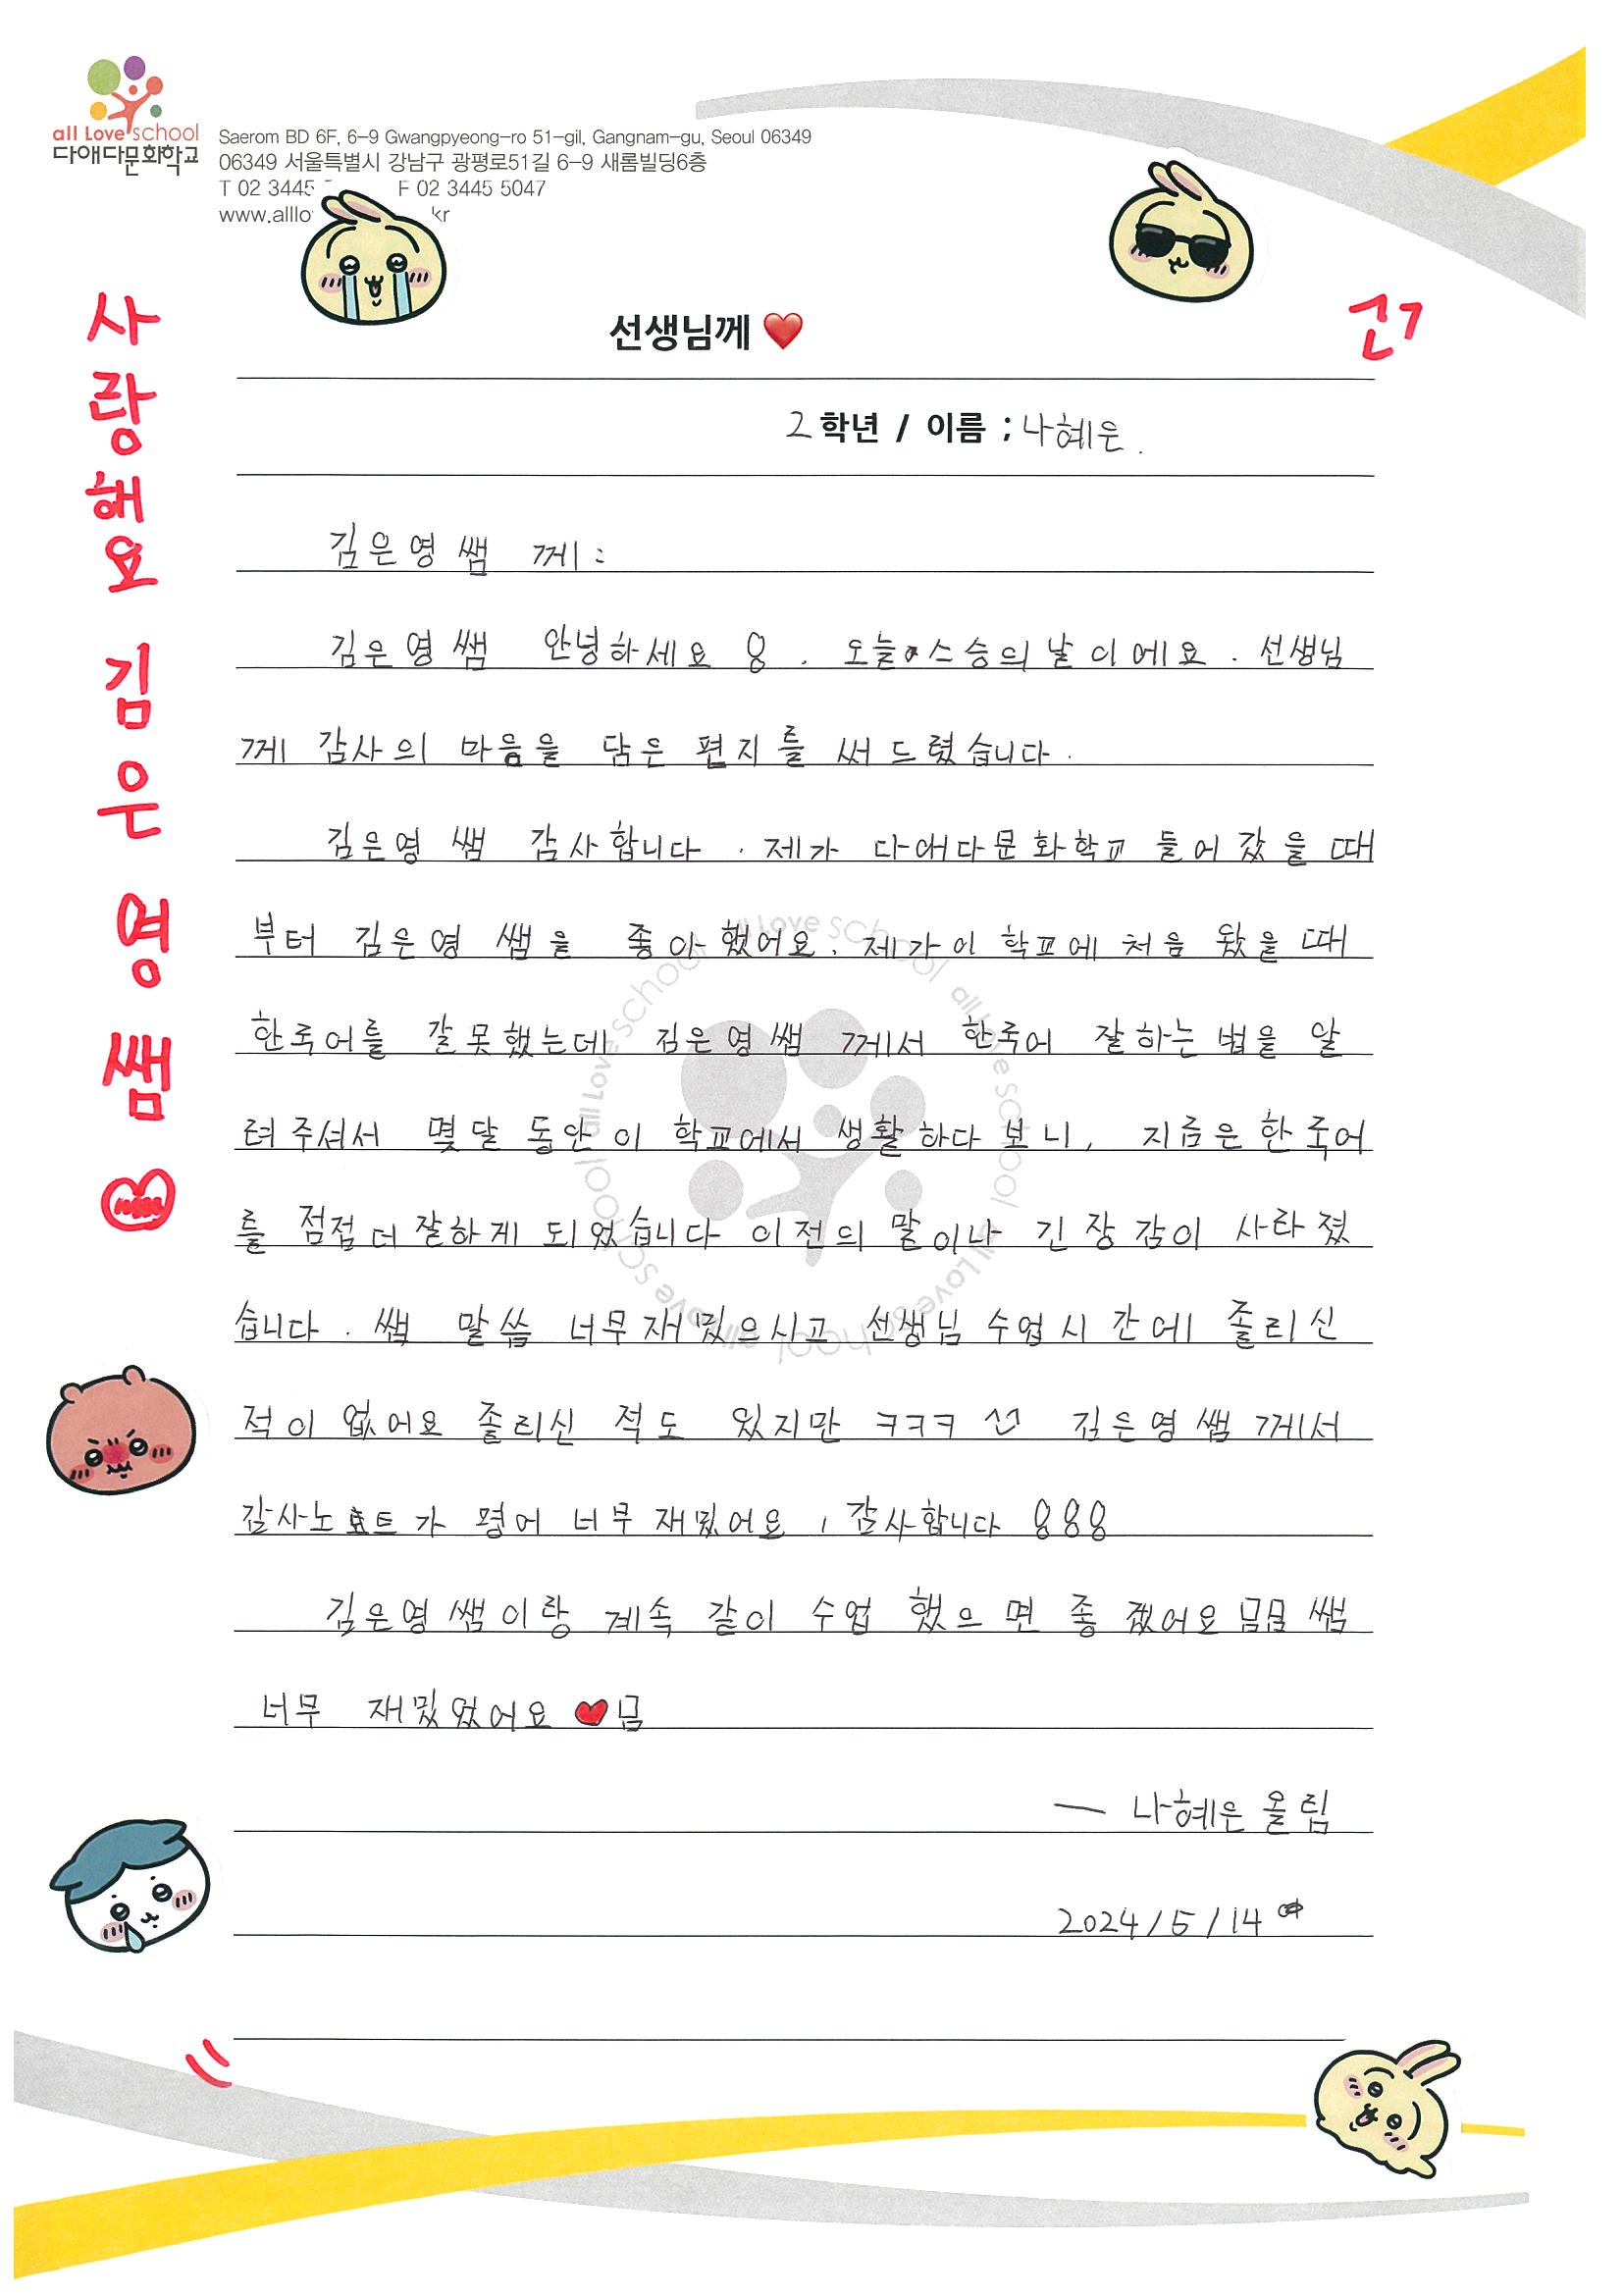 all Love school
다애다문화학교
Saerom BD 6F, 6-9 Gwangpyeong-ro 51-gil, Gangnam-gu, Seoul 06349
06349 서울특별시 강남구 광평로51길 6-9 새롬빌딩6층
T 02 3445 F 02 3445 5047
www.alllo kr
선생님께 ❤
2 학년 / 이름 ; 나혜은.
사랑해요 김은영쌤
김은영쌤 께:
김은영쌤 안녕하세요 . 오늘 스승의날이에요. 선생님
께 감사의 마음을 담은 편지를 써 드렸습니다.
김은영 쌤 감사합니다. 제가 다애다문화학교 들어갔을 때
부터 김은영 쌤을 좋아했어요. 제가 이 학교에 처음 왔을 때
한국어를 잘못했는데 김은영쌤 께서 한국어 잘하는 법을 알
려주셔서 몇달 동안 이 학교에서 생활하다 보니, 지금은 한국어
를 점점 더 잘하게 되었습니다 이전의 말이나 긴장감이 사라졌
습니다. 쌤 말씀 너무 재밌으시고 선생님 수업시간에 졸리신
적이 없어요 졸리신 적도 있지만 ㅋㅋㅋ 김은영쌤 께서
감사노트가 너무 재밌어요, 감사합니다
김은영쌤이랑 계속 같이 수업 했으면 좋겠어요 쌤
너무 재밌었어요 ❤
— 나혜은 올림
2024/5/14
all Love school all Love school all Love school all Love school all Love school